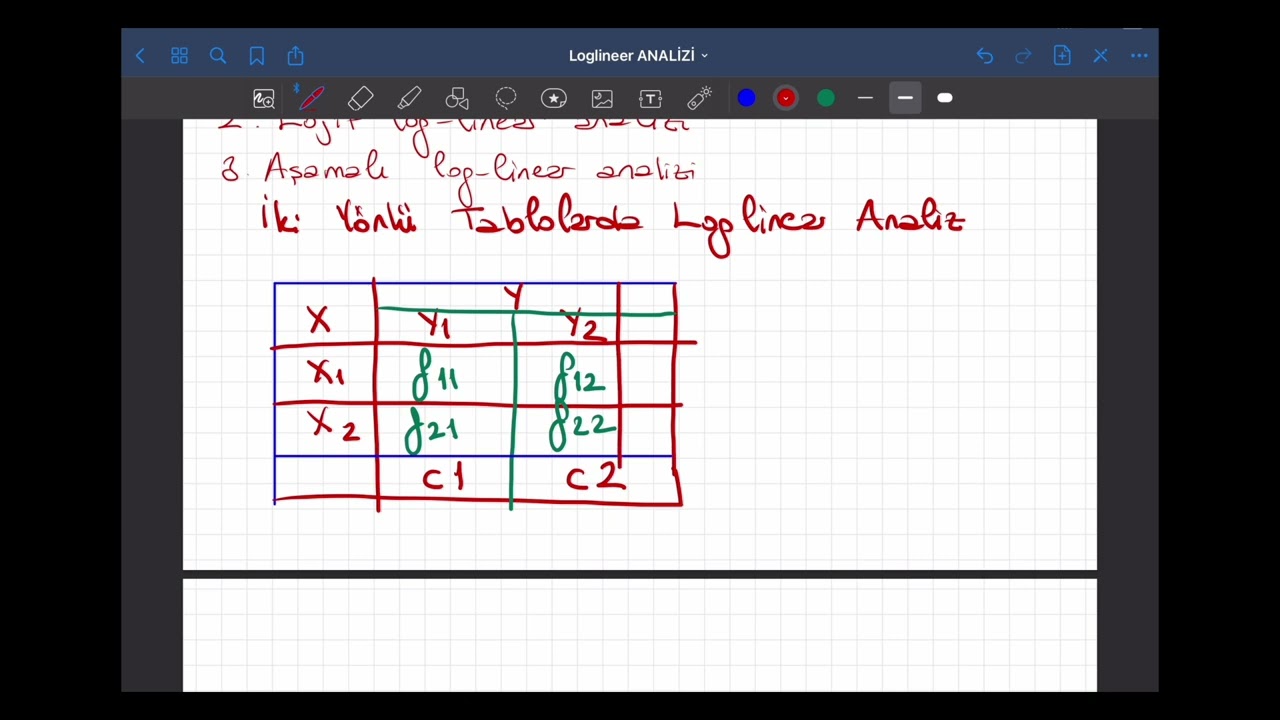 Loglineer ANALİZİ
2. Lojit log-linear analizi
3. Aşamalı log-linear analizi
İki Yönlü Tablolarda Loglinear Analiz
Y
X Y1 Y2
X1 f11 f12
X2 f21 f22
C1 C2